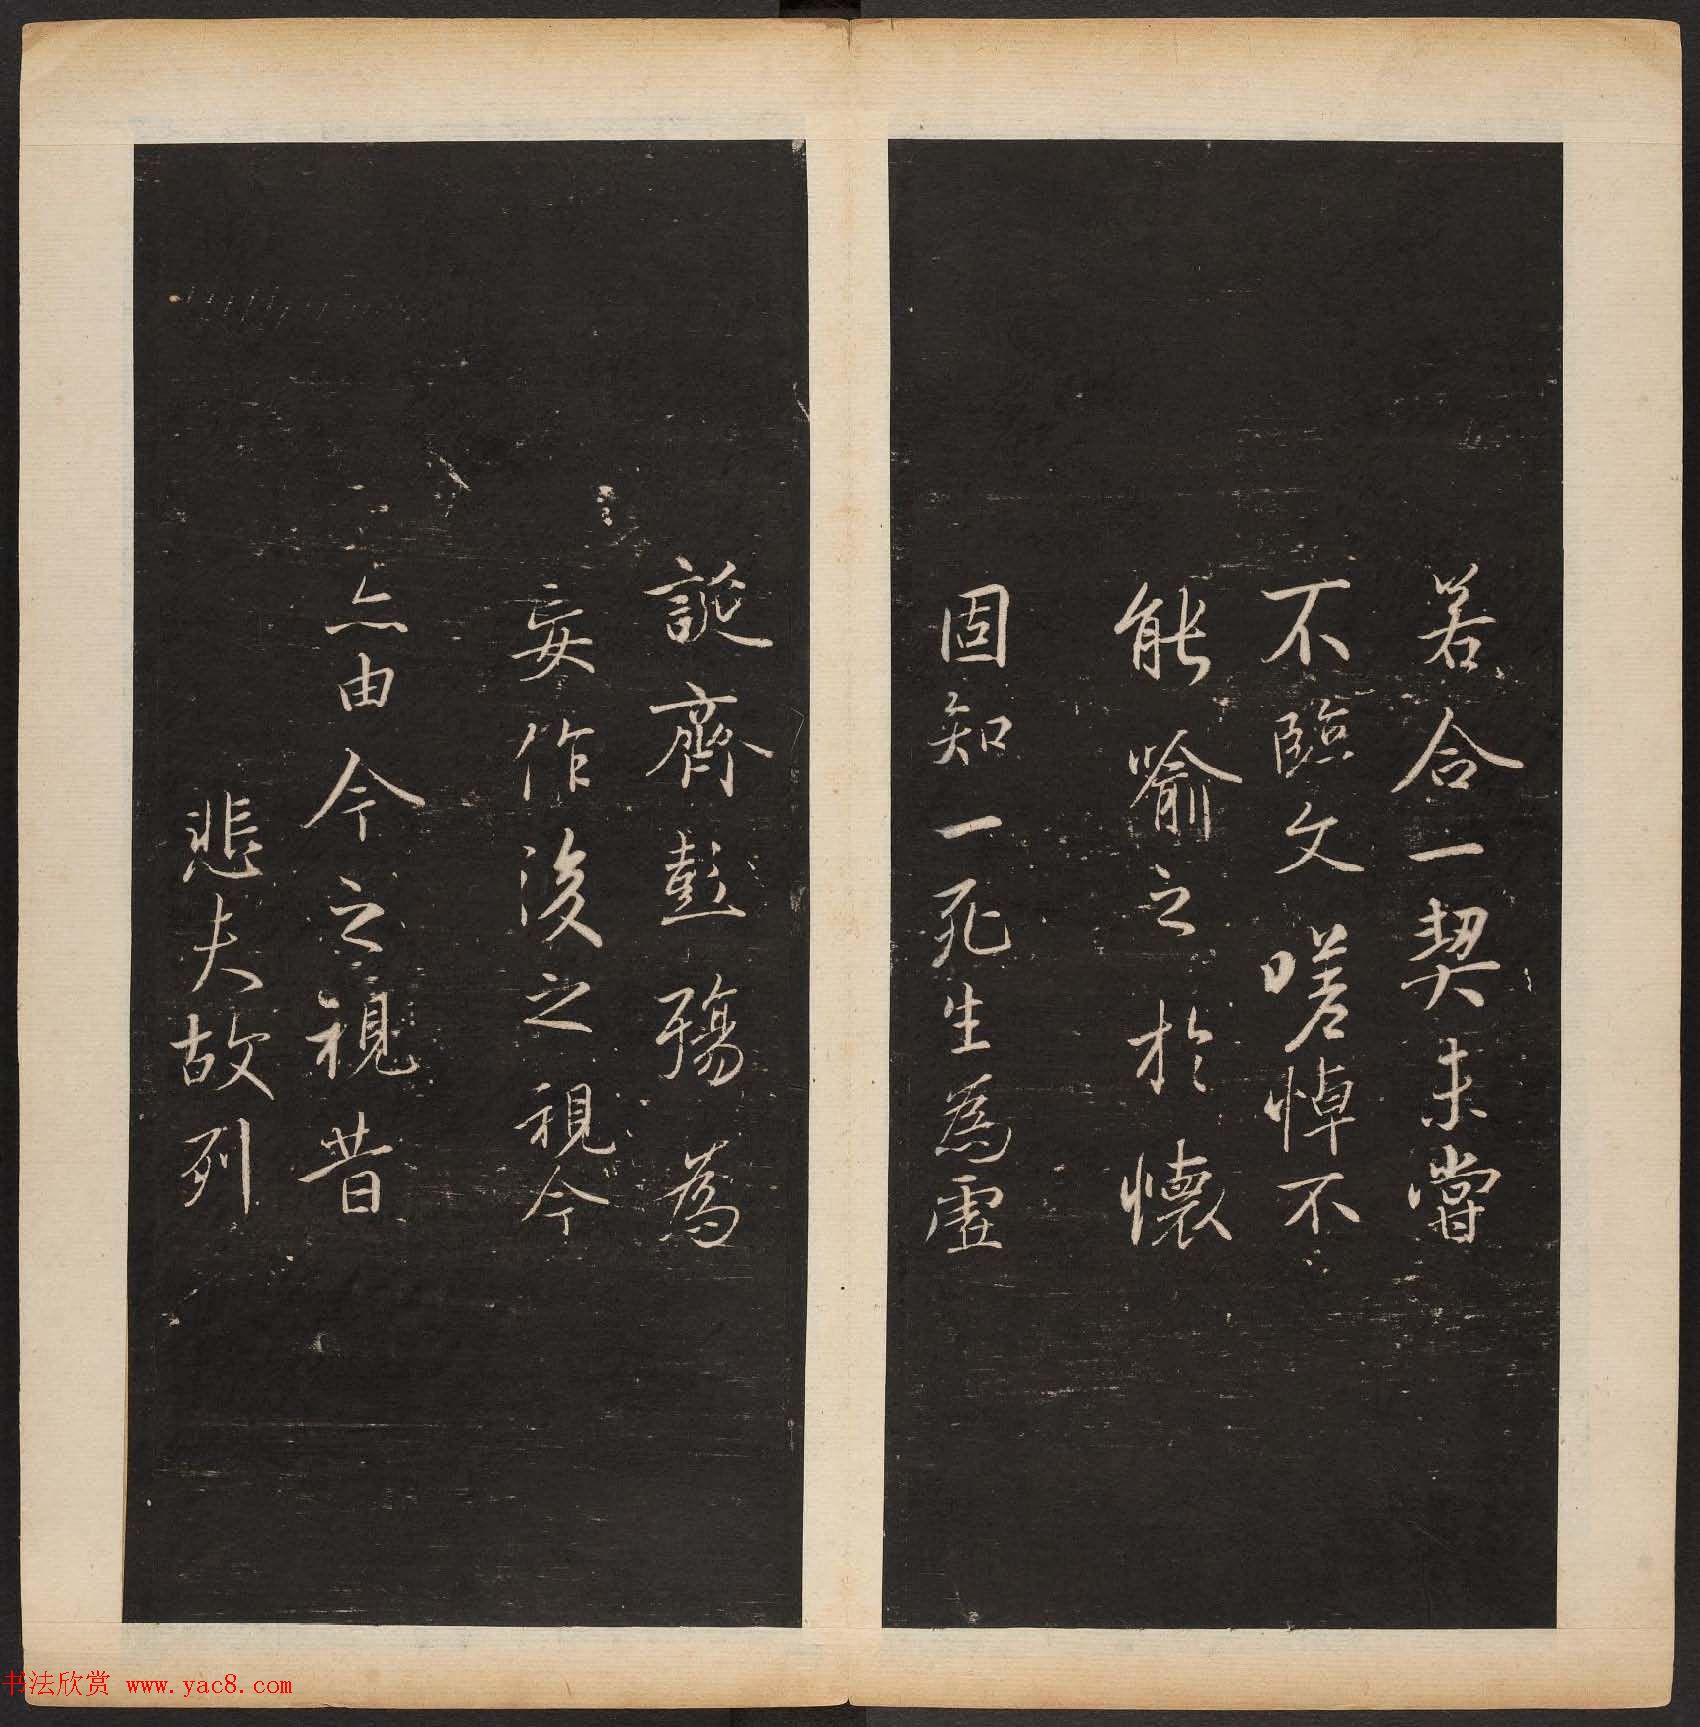 若合一契未嘗
不臨文嗟悼不
能喻之於懷
固知一死生為虛
誕齊彭殤為
妄作後之視今
亦由今之視昔
悲夫故列
书法欣赏 www.yac8.com